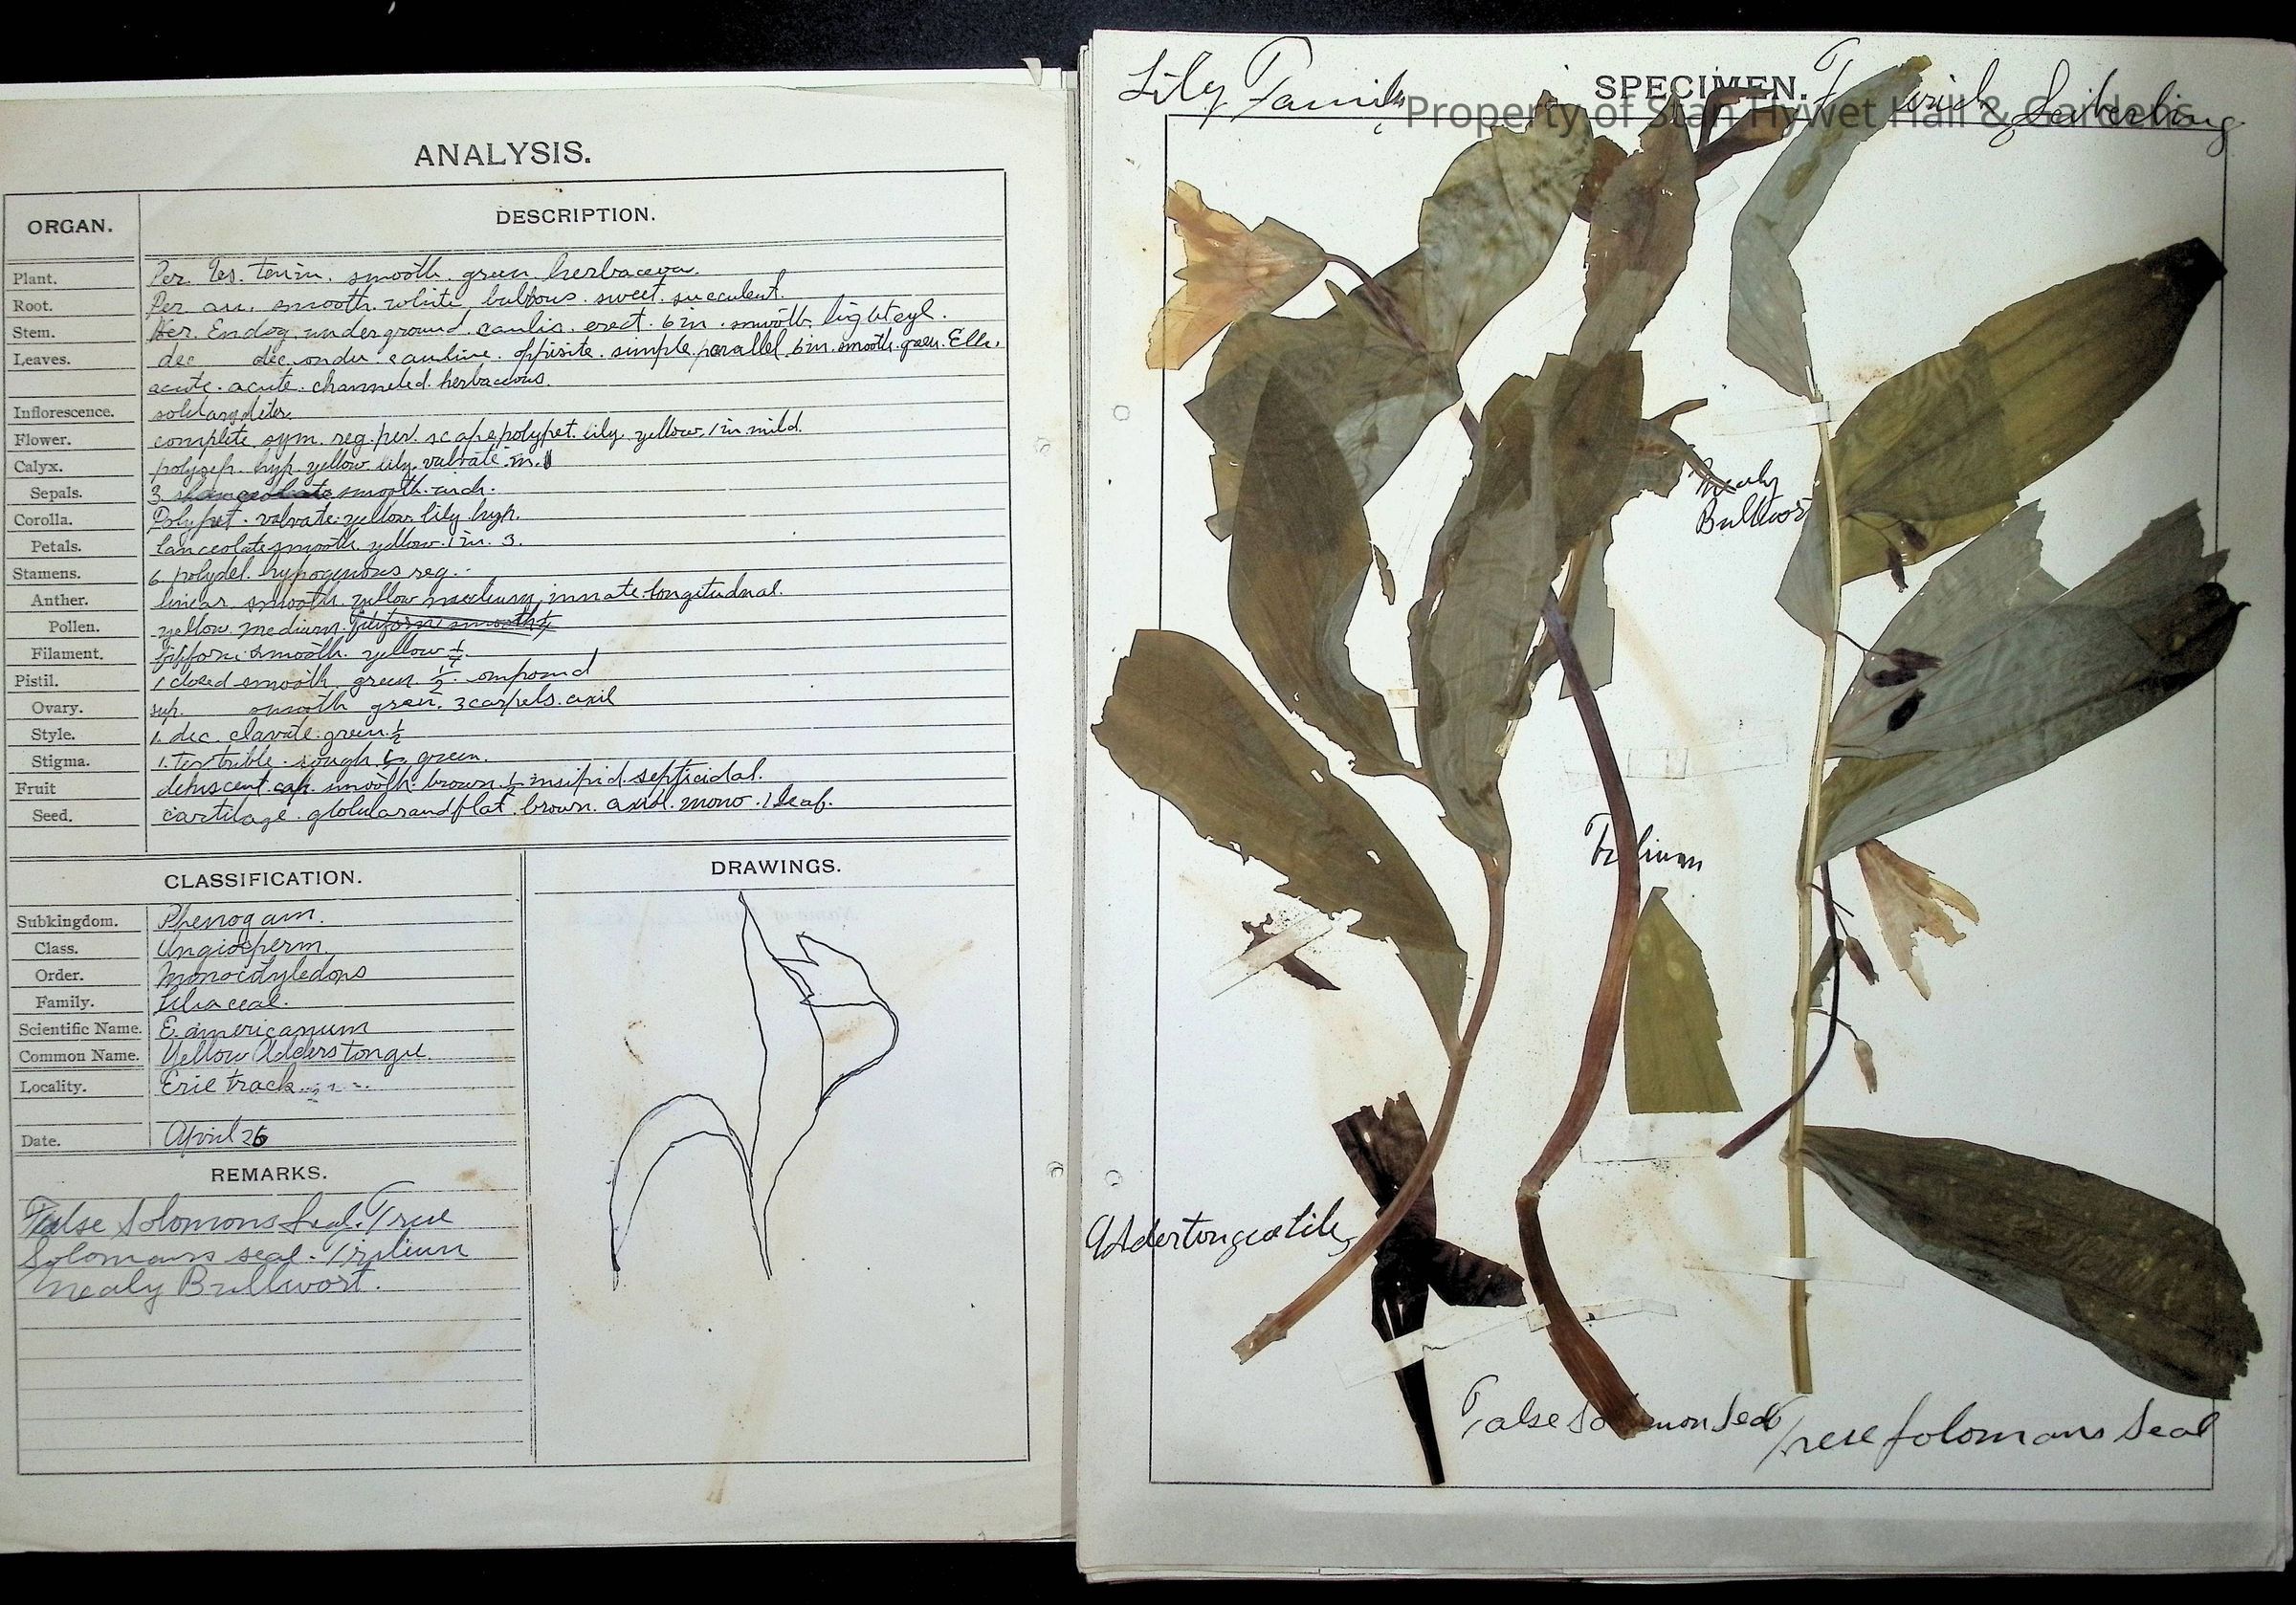 ANALYSIS.
ORGAN. DESCRIPTION.
Plant. Per. smooth. green. herbaceou.
Root. Per. smooth. white. bulbous. sweet. succulent.
Stem. Her. Endog. underground. caulis. erect. 6 in. smooth. light
Leaves. dec dec. cauline. oppisite. simple. parallel. 6 in. smooth. green. Elle.
acute. acute. channeled. herbaceous.
Inflorescence. solitary
Flower. complete. sym. reg. per. scape polypet. lily. yellow. 1 in mild.
Calyx. polysep. hyp. yellow. lily. valvate.
Sepals. 3 smooth.
Corolla. Polypet. valvate. yellow. lily hyp.
Petals. lanceolate smooth. yellow. 1 in. 3.
Stamens. 6. polydel. hypogenous reg.
Anther. linear. smooth. yellow medium. innate longitudnal.
Pollen. yellow. medium.
Filament. smooth. yellow
Pistil. 1 closed smooth. green. 1/2 ompound
Ovary. sup. smooth green. 3 carpels. axil
Style. 1. dec. clavate. green. 1/2
Stigma. 1. rough green.
Fruit dehiscent. cap. smooth. brown. insipid. septicidal.
Seed. cartilage. globular and flat. brown. axil. mono. 1 leaf.
CLASSIFICATION. DRAWINGS.
Subkingdom. Phenogam.
Class. Angiosperm
Order. Monocotyledons
Family. Liliaceal.
Scientific Name. E. americanum
Common Name. Yellow Adderstongue
Locality. Erie track
Date. April 26
REMARKS.
False Solomons Seal. True
Solomans seal. Trilium
Mealy Bullwort.
Lily Family SPECIMEN. Seiberling
Property of Stan Hywet Hall & Gardens
Mealy
Bullwort
Trilium
False Solomon Seal
True Solomans Seal